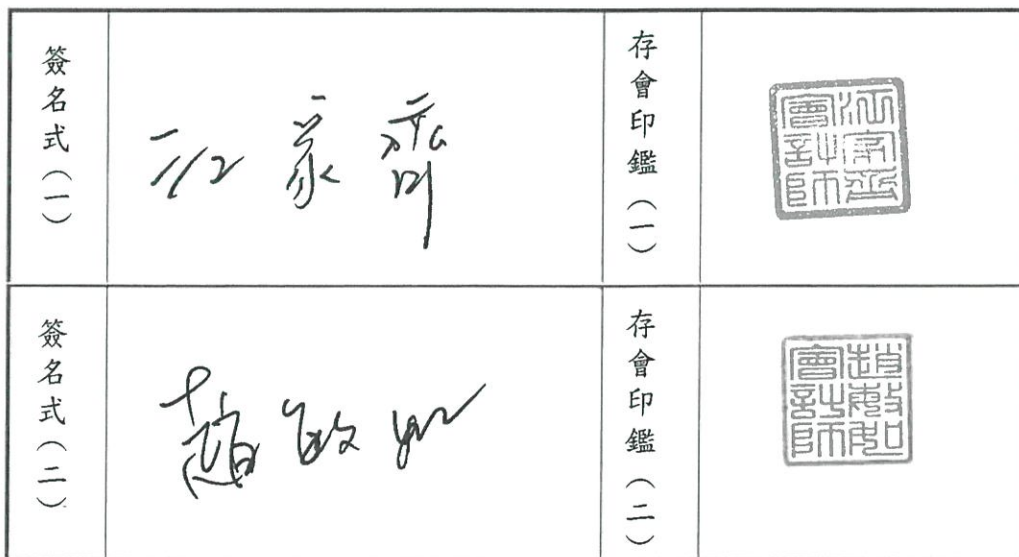 簽名式（一）
江家齊
存會印鑑（一）
江家齊
會計師
簽名式（二）
趙敏如
存會印鑑（二）
趙敏如
會計師